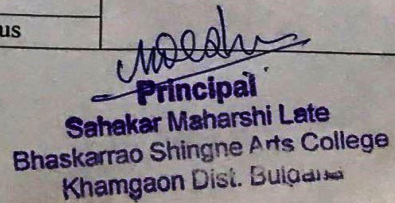 us
Principal
Sahakar Maharshi Late
Bhaskarrao Shingne Arts College
Khamgaon Dist.